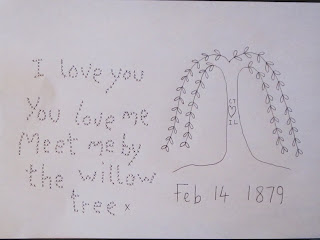 I love you
You love me
Meet me by
the willow
tree x
U
♡
IL
Feb 14 1879